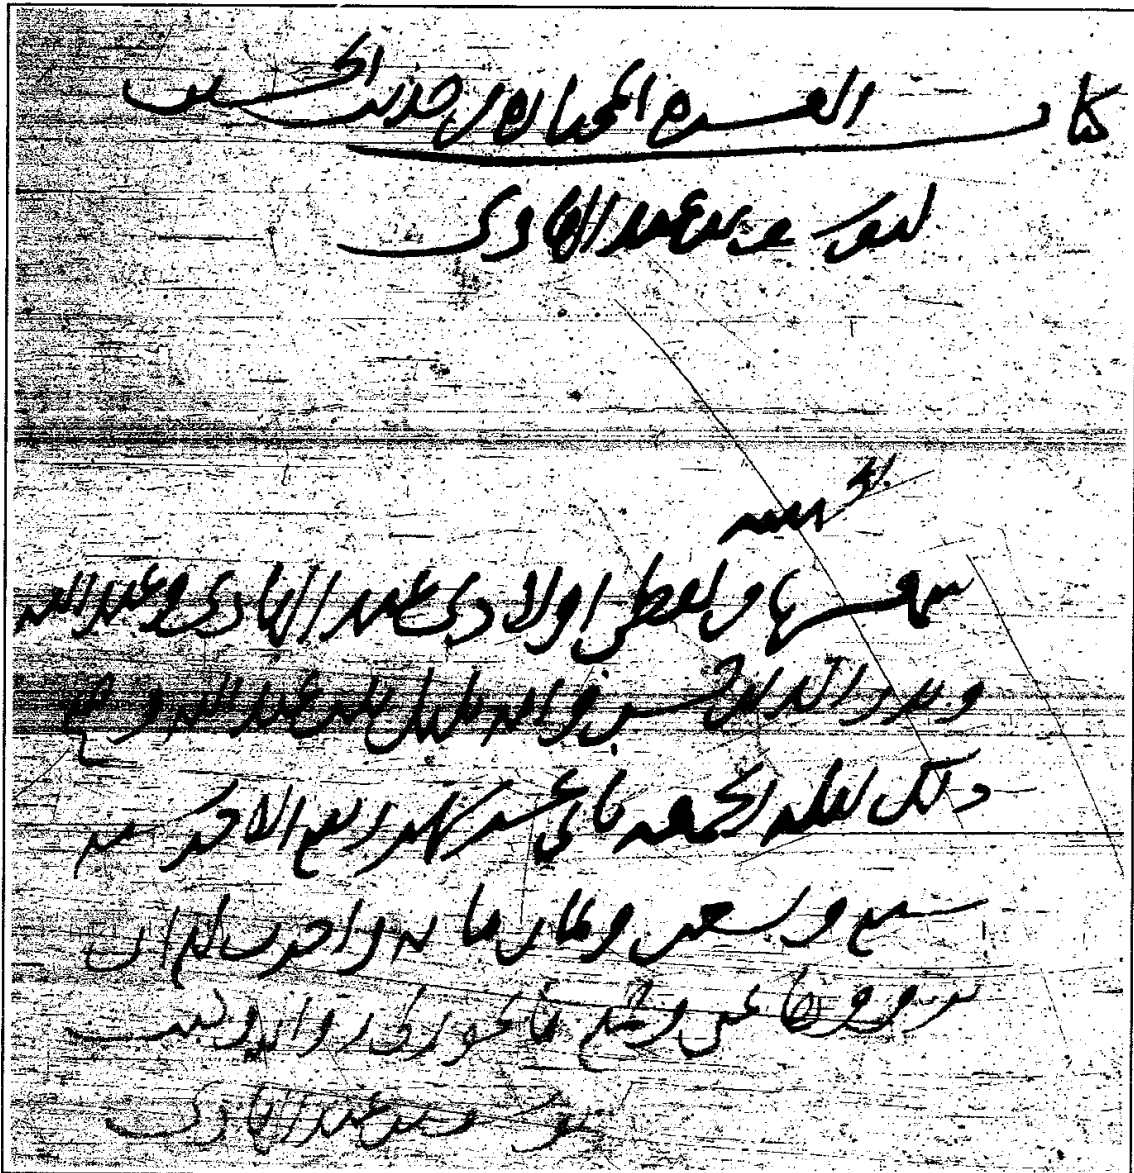 كتاب العشرة المختارة من حديث الحسين
ليوسف بن عبد الهادي
الحمد لله
سمعها من لفظي اولادي عبد الهادي وعبد الله
وبدر الدين حسن وامه بلبل بنت عبد الله وصح
ذلك ليلة الجمعة ثاني عشر شهر ربيع الاخر سنة
سبع وتسعين وثمان مائة واجزت لهم ان
يرووها عني وجميع ما يجوز لي روايته وكتب
يوسف بن عبد الهادي